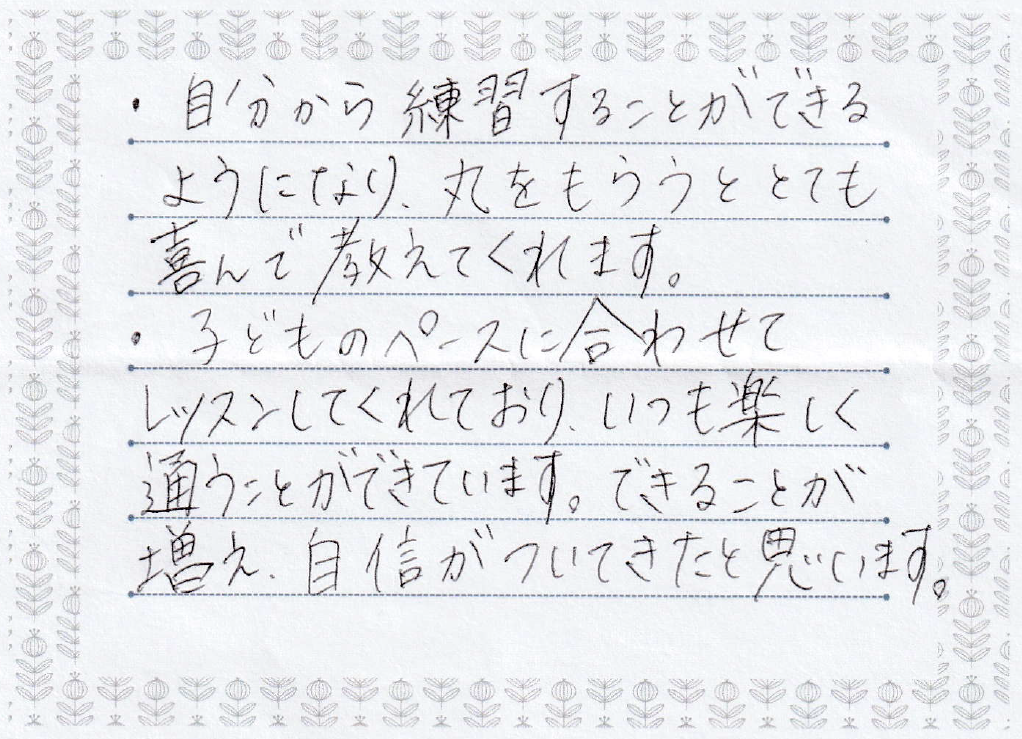 ・自分から練習することができる
ようになり、丸をもらうととても
喜んで教えてくれます。
・子どものペースに合わせて
レッスンしてくれており、いつも楽しく
通うことができています。できることが
増え、自信がついてきたと思います。